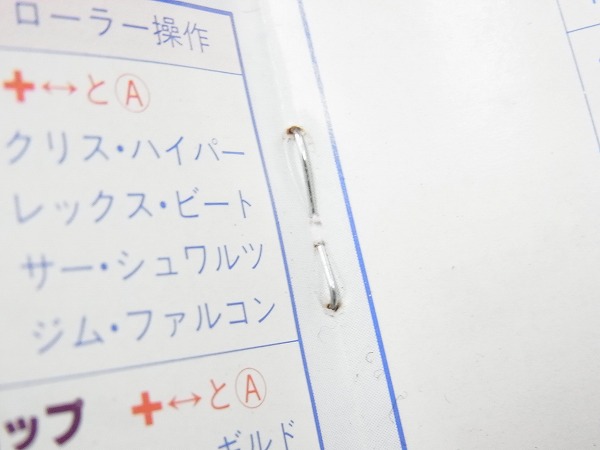 ローラー操作
✚↔とⒶ
クリス・ハイパー
レックス・ビート
サー・シュワルツ
ジム・ファルコン
ップ ✚↔とⒶ
ボルド